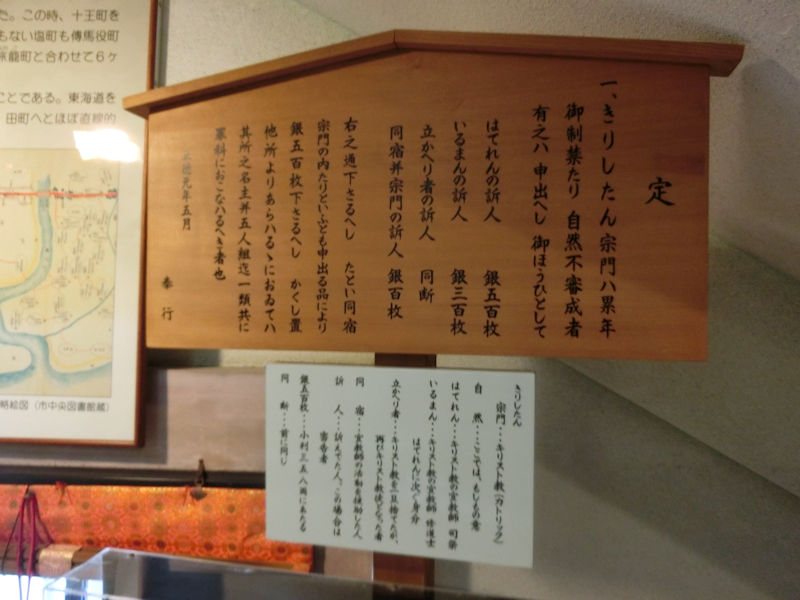 定
一、きりしたん宗門ハ累年
御制禁たり 自然不審成者
有之ハ 申出へし 御ほうひとして
はてれんの訴人 銀五百枚
いるまんの訴人 銀三百枚
立かへり者の訴人 同断
同宿并宗門の訴人 銀百枚
右之通下さるへし たとい同宿
宗門の内たりといふとも申出る品により
銀五百枚下さるへし かくし置
他所よりあらハるゝにおゐてハ
其所之名主并五人組迄一類共に
罪科におこなハるへき者也
徳元年五月
奉行
きりしたん
宗門…キリスト教(カトリック)
自然…ここでは、もしもの意
はてれん…キリスト教の宣教師 司祭
いるまん…キリスト教の宣教師 修道士
はてれんに次ぐ身分
立かへり者…キリスト教を一旦捨てたが、
再びキリスト教徒となった者
同宿…宣教師の活動を援助した人
訴人…訴えでた人。この場合は
密告者
銀五百枚…小判三五八両にあたる
同断…前に同じ
た。この時、十王町を
もない塩町も傳馬役町
旅籠町と合わせて6ヶ
ことである。東海道を
田町へとほぼ直線的
略絵図(市中央図書館蔵)